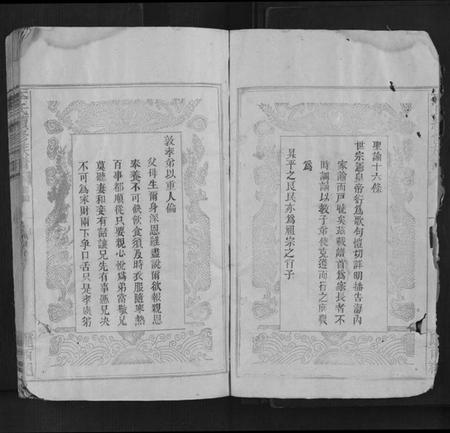 聖諭十六條
世宗憲皇帝衍為歌句愷切詳明播告海內
家諭而戶曉矣茲載譜首為家長者不
時調誦以教子弟使見遵而行之庶幾
為
昇平之良民亦為祖宗之肖子
敦孝弟以重人倫
父母生爾身深恩難盡說爾欲報親恩
奉養不可缺飲食須及時衣服隨寒熱
百事都順從只要親心悅為弟當敬兄
莫聽妻和妾有話讓兄先有事應兄决
不可為家財閙下爭口舌只是孝庶弟